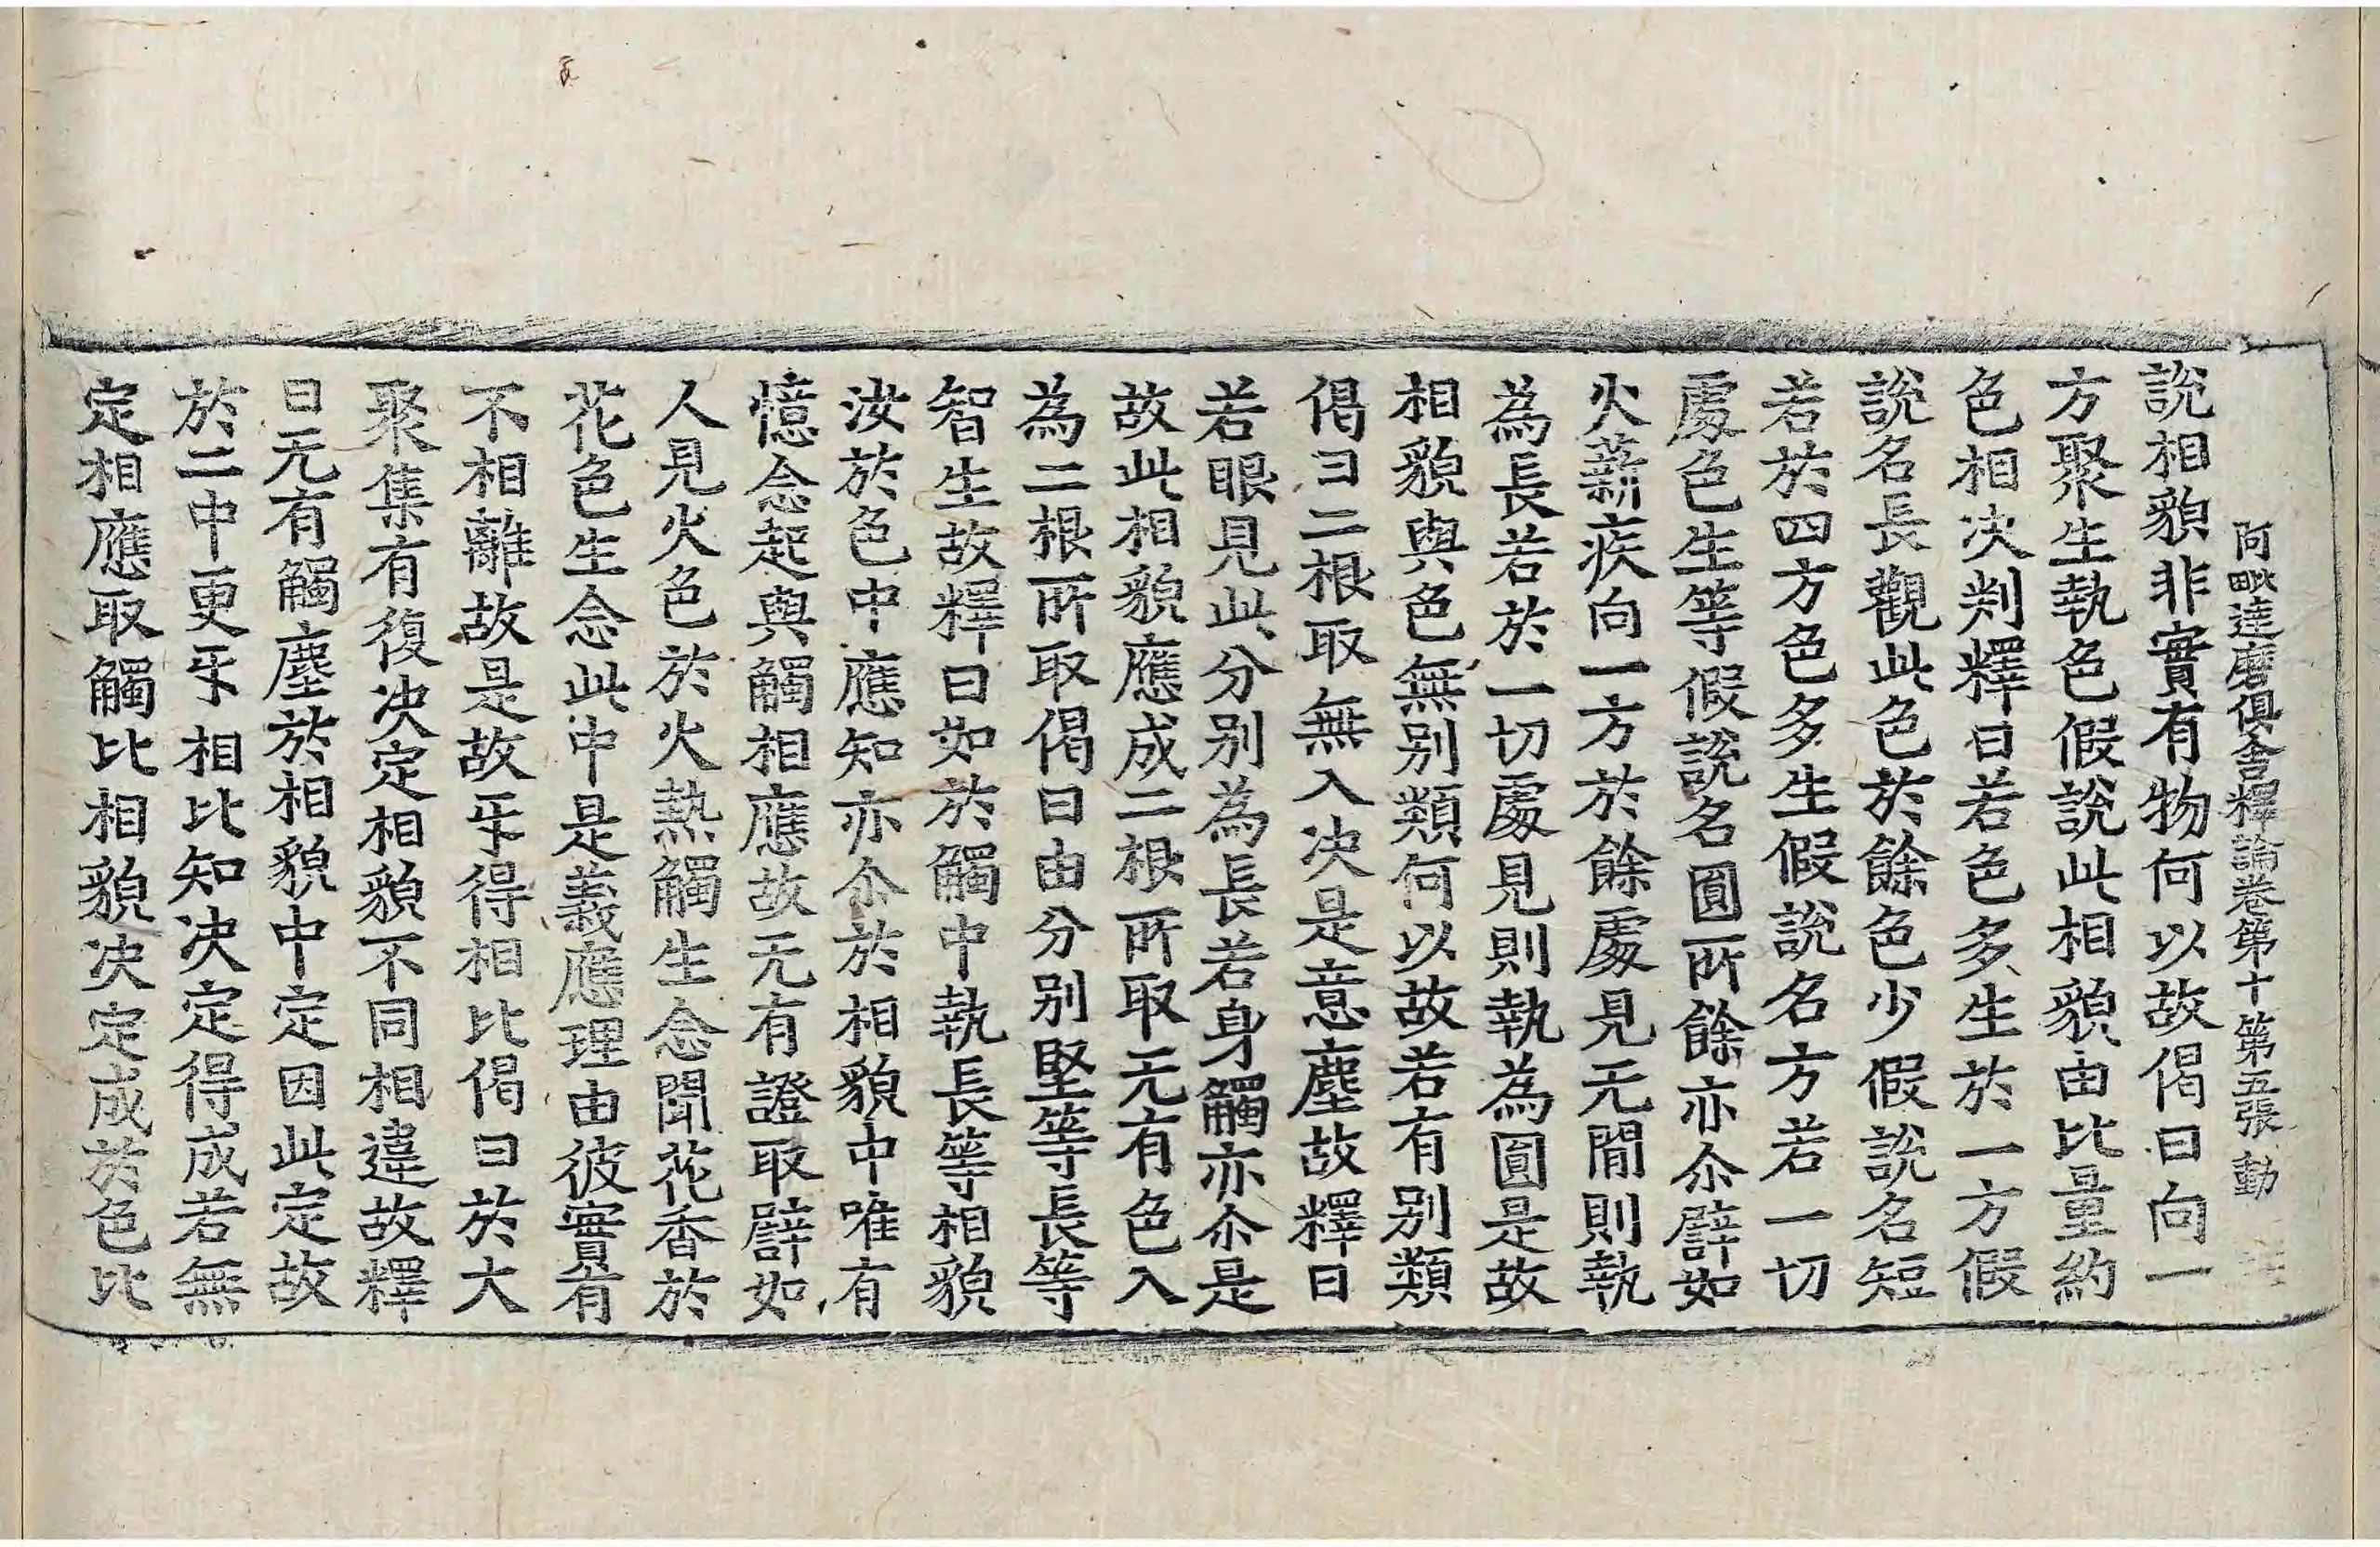 阿毗達磨俱舍釋論卷第十第五張 動
說相貌非實有物何以故偈曰向一
方聚生執色假說此相貌由比量約
色相决判釋曰若色多生於一方假
說名長觀此色於餘色少假說名短
若於四方色多生假說名方若一切
處色生等假說名圓所餘亦尒譬如
火薪疾向一方於餘處見无閒則執
為長若於一切處見則執為圓是故
相貌與色無别類何以故若有别類
偈曰二根取無入决是意塵故釋曰
若眼見此分别為長若身觸亦尒是
故此相貌應成二根所取无有色入
為二根所取偈曰由分别堅等長等
智生故釋曰如於觸中執長等相貌
汝於色中應知亦尒於相貌中唯有
憶念起與觸相應故无有證取譬如
人見火色於火熱觸生念聞花香於
花色生念此中是義應理由彼實有
不相離故是故㸦得相比偈曰於大
聚集有復决定相貌不同相違故釋
曰无有觸塵於相貌中定因此定故
於二中更㸦相比知决定得成若無
定相應取觸比相貌决定成於色比